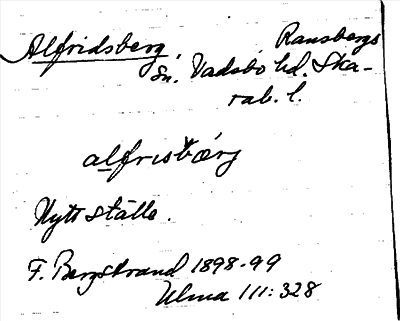 Alfridsberg, Ransbergs
Sn. Vadsbo hd. Ska-
rab. l.
alfrisbærg
Nytt ställe.
F. Bergstrand 1898-99
Ulma 111:328